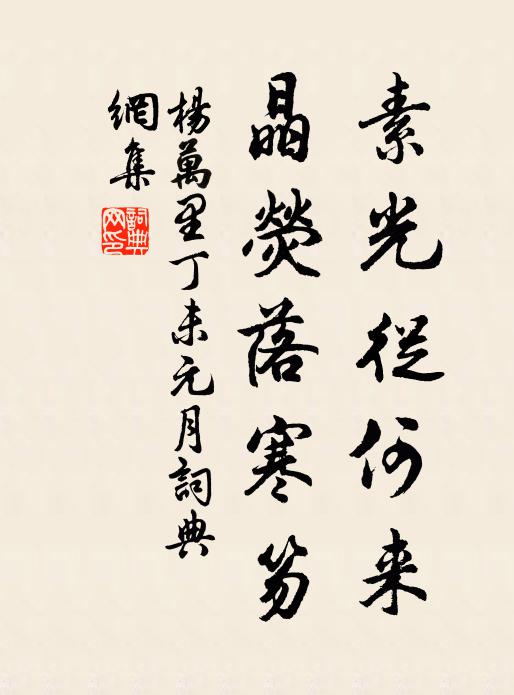 素光從何来
晶熒落寒笏
楊萬里丁未元月詞典
網集
詞典
网印